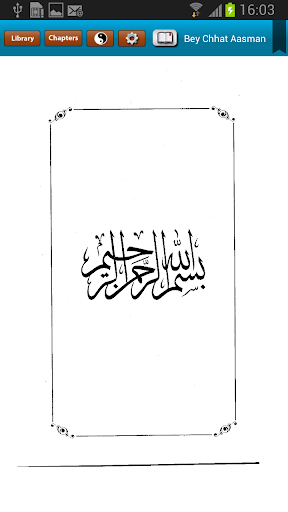 16:03
Library Chapters Bey Chhat Aasman
بسم الله الرحمن الرحيم